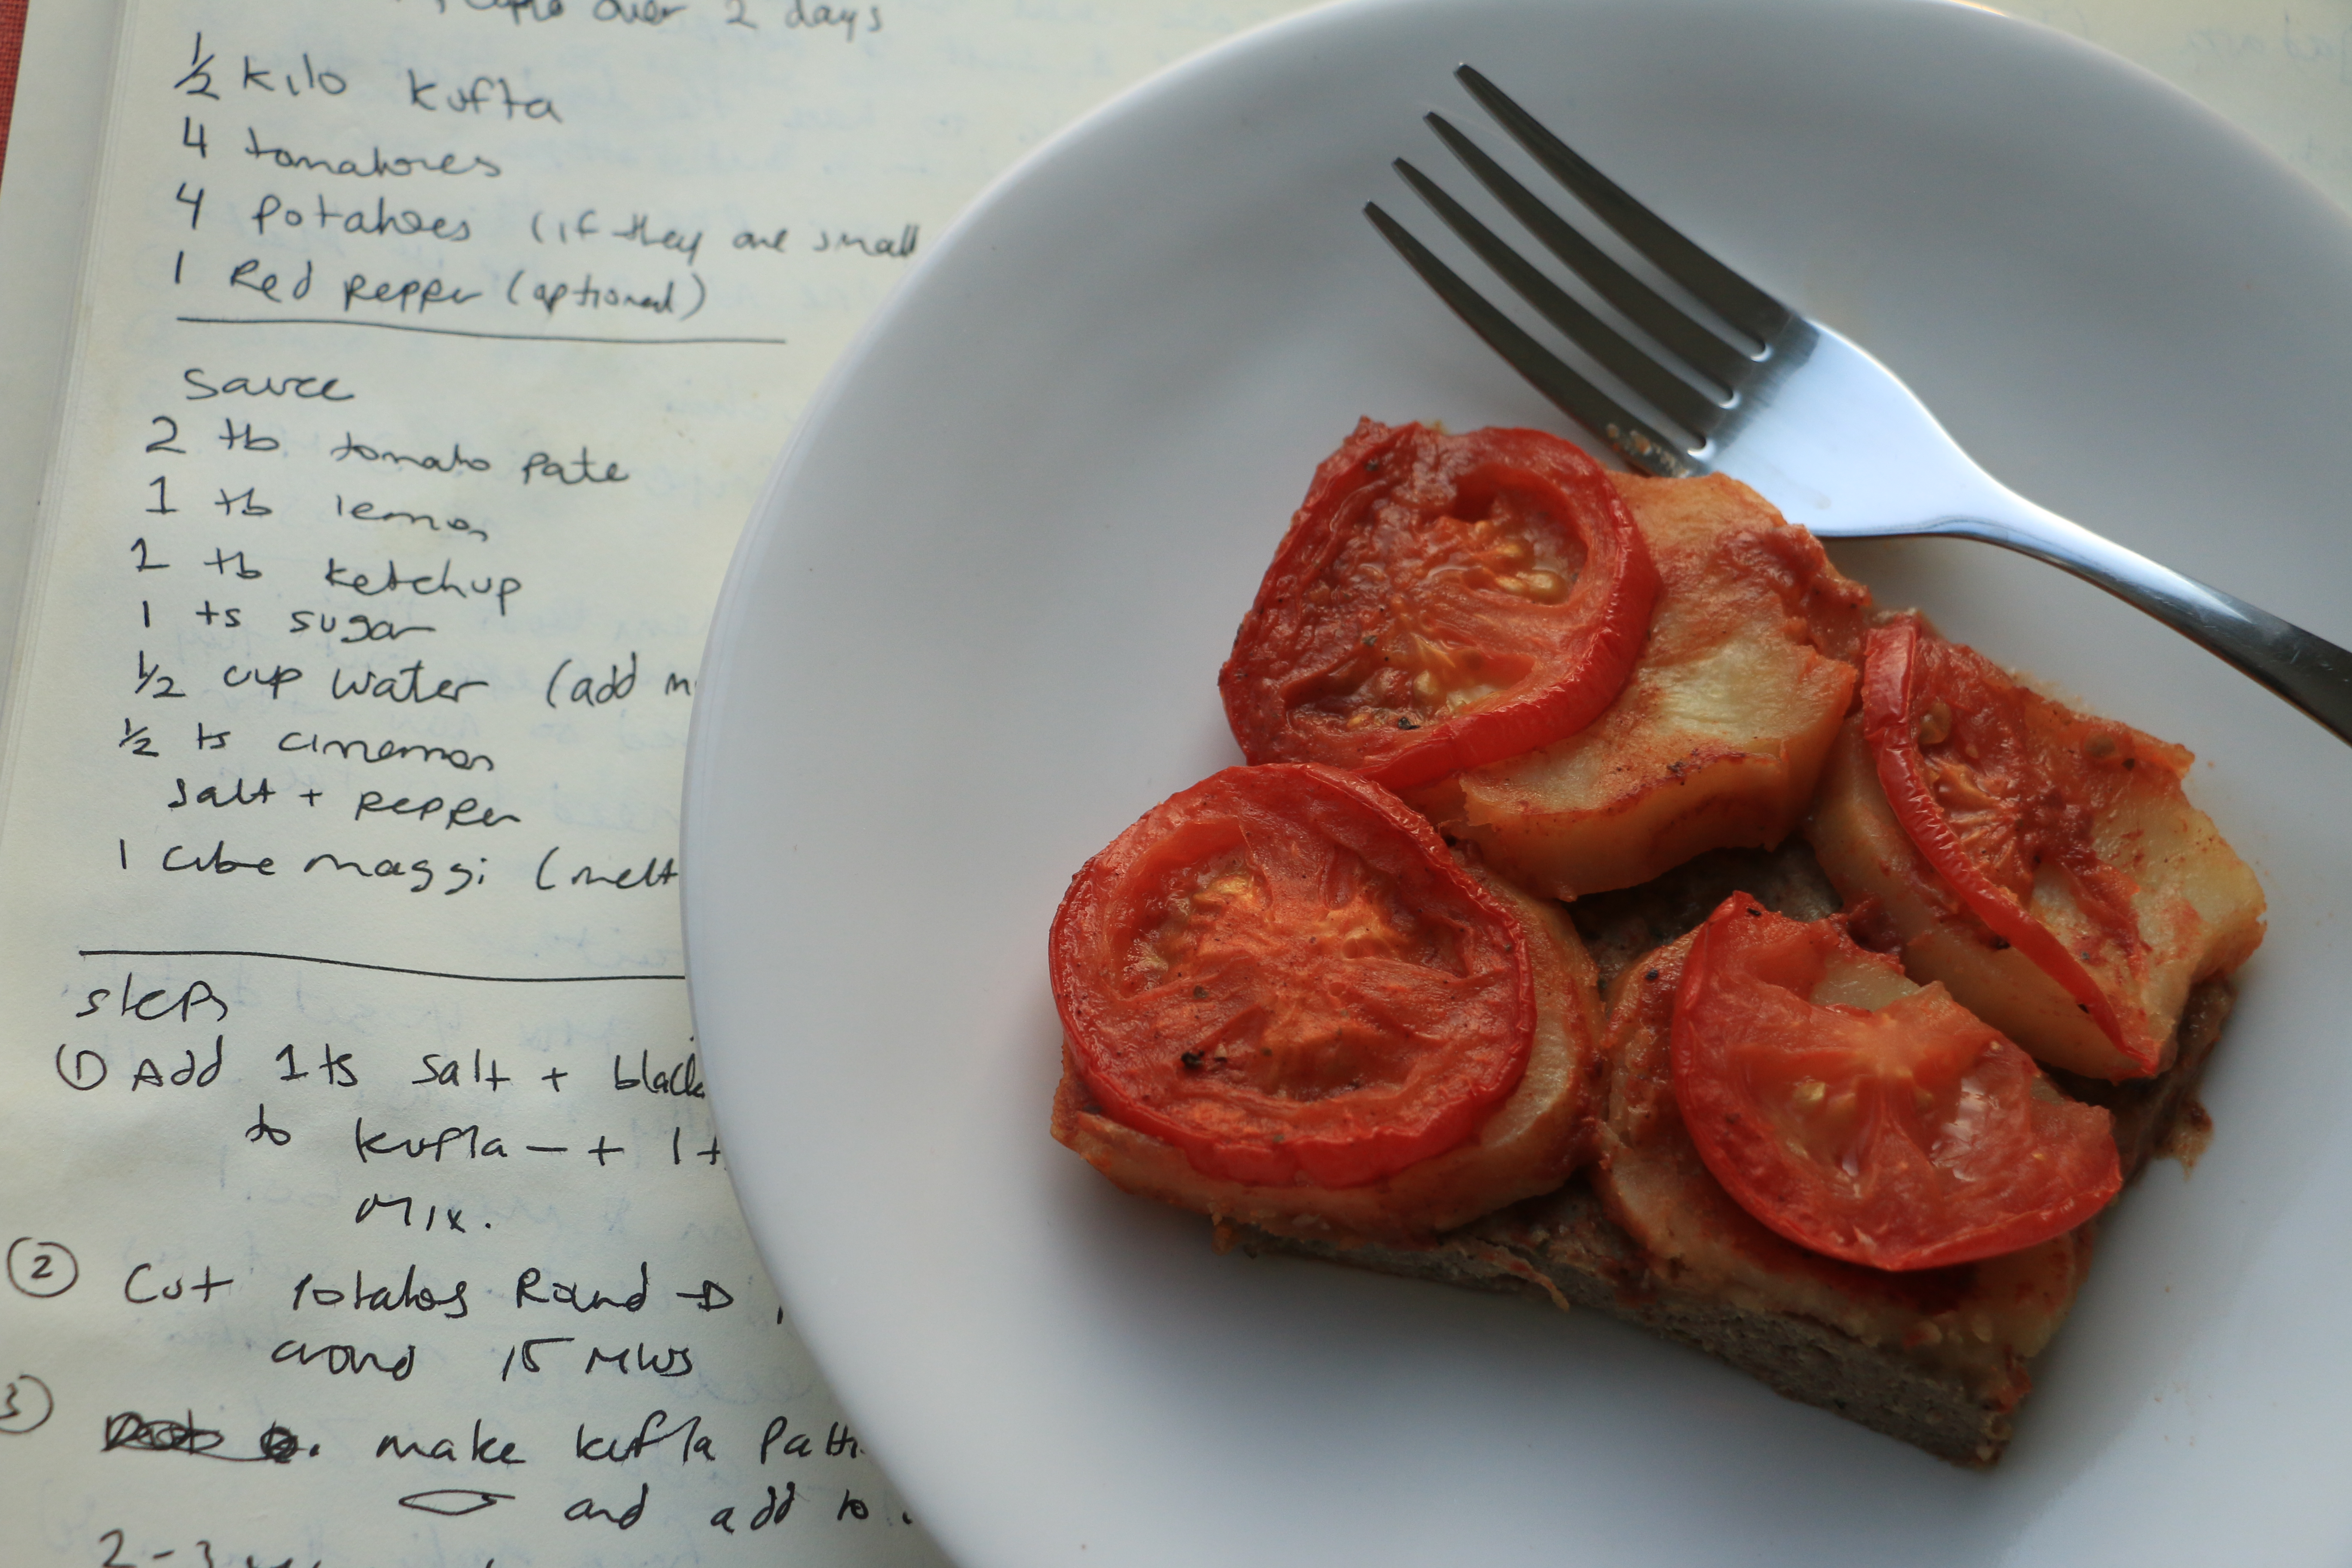 over 2 days
1/2 kilo kufta
4 tomatoes
4 potatoes (if they are small
1 Red pepper (optional)
Sauce
2 tb tomato pate
1 tb lemon
1 tb ketchup
1 ts sugar
1/2 cup water (add
1/2 ts cinemon
salt + pepper
1 cube maggi (melt
steps
① Add 1 ts salt + black
to kufta — + 1
Mix.
② Cut potatos Round →
around 15
3 make kufta
and add to
2-3